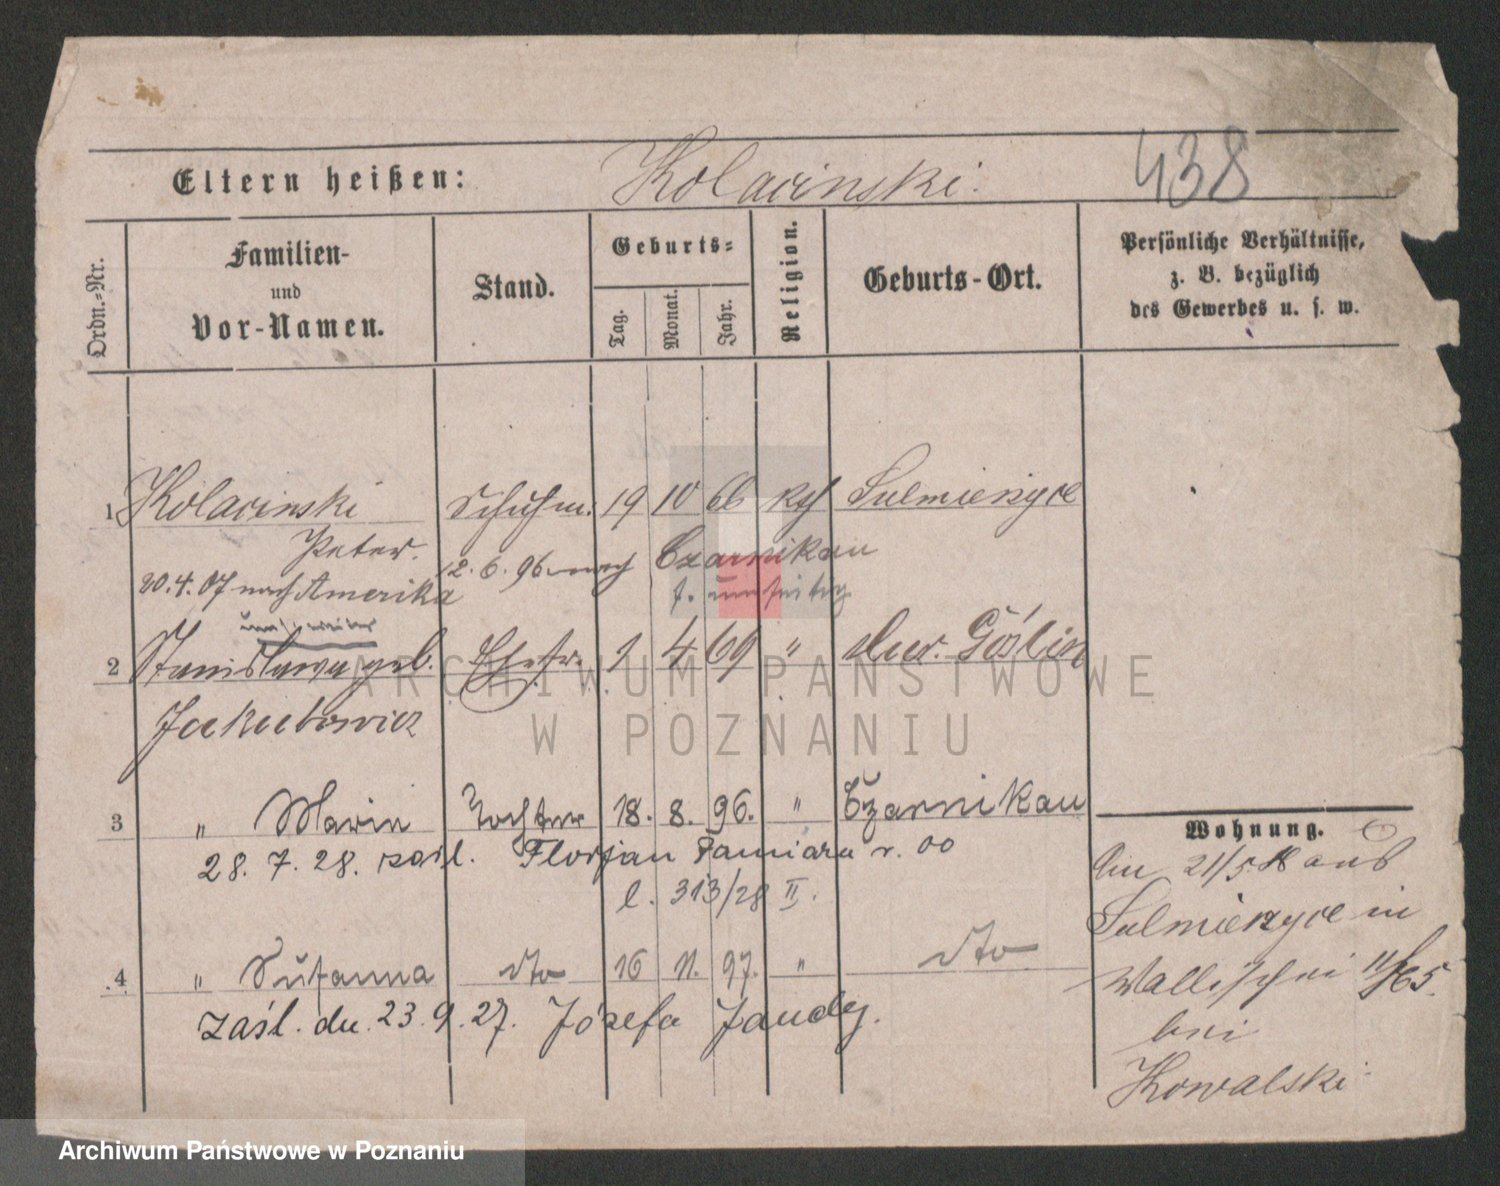 Eltern heißen: Kolacinski. 438
Ordn.-Nr.
Familien- und Vor-Namen.
Stand.
Geburts-
Tag. Monat. Jahr.
Religion.
Geburts-Ort.
Persönliche Verhältnisse, z. B. bezüglich des Gewerbes u. s. w.
1 Kolacinski Schuhm. 19 10 66 kth Sulmierzyce
Peter. 12.6.96 nach Czarnikau
20.4.07 nach Amerika f. umseitig
2 Stanislawa geb. Ehefr. 1 4 69 " Goślin
Jakubowicz
3 " Marie Tochter 18. 8. 96. " Czarnikau
28. 7. 28. zaśl. Florjan Famiara r. 00
l. 313/28 II.
4 " Susanna dto 16 11. 97. " dto
zaśl. dn. 23. 9. 27. Józefa Jandy.
Wohnung.
21/5. aus
Sulmierzyce in
Wallischei
bei
Kowalski
ARCHIWUM PAŃSTWOWE
W POZNANIU
Archiwum Państwowe w Poznaniu